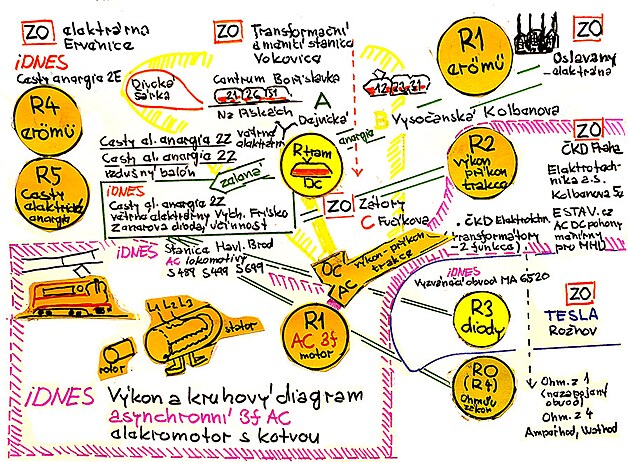 ZO elektrárna
Ervěnice
iDNES
Cesty energie 2E
R4
erömü
R5
Cesty
elektrické
energie
Divoká
Šárka
ZO Transformační
a měnící stanice
Vokovice
Centrum Bořislavka
20 26 51
Na Pískách
A
Dejvická
větrné
elektrárny
Cesty el. energie 2Z
Cesty el. energie 2Z
vzdušný balón
zelená
iDNES
Cesty el. energie 2Z
větrné elektrárny Vých. Frísko
Zenerova dioda, účinnost
R tram
DC
energie
B
R1
erömü
ZO
Oslavany
elektrárna
Vysočanská Kolbenova
R2
výkon
příkon
trakce
ZO
ČKD Praha
Elektrotech-
nika a.s.
Kolbenova 52
ESTAV.cz
AC DC pohony
ZO Zátory
C Fučíkova
ČKD Elektrotechn.
transformátory
- 2 funkce
iDNES Stanice Havl. Brod
AC lokomotivy
S 489 S 499 S 699
DC
AC
výkon-příkon
trakce
iDNES
Vyzývací obvod MA 6520
R3
diody
ZO
TESLA
Rožnov
L1 L2 L3
stator
rotor
R1
AC 3f
motor
R0
(R4)
Ohmův
zákon
Ohm. z 1
(nezapojený
obvod)
Ohm. z 4
iDNES Výkon a kruhový diagram
asynchronní 3f AC
elekromotor s kotvou